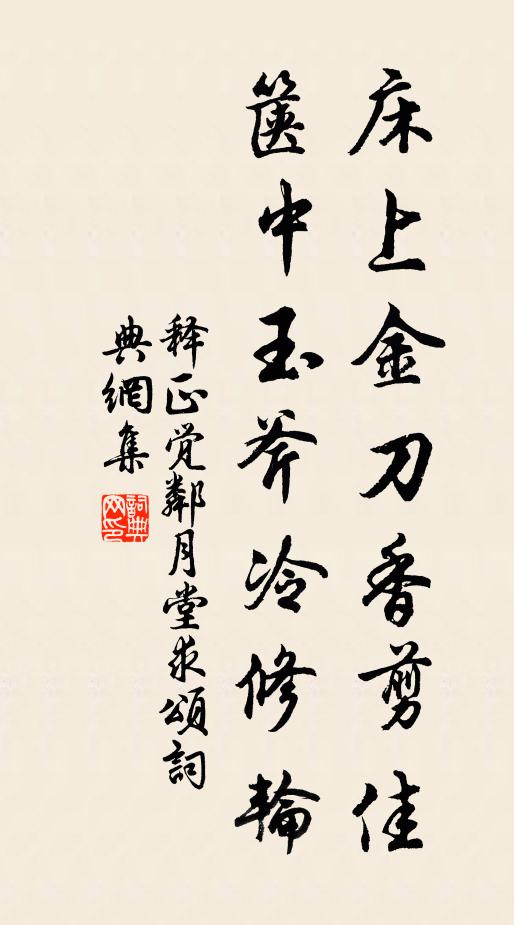 床上金刀香剪佳
箧中玉斧冷修輪
释正觉鄰月堂求頌詞
典網集
詞典網印